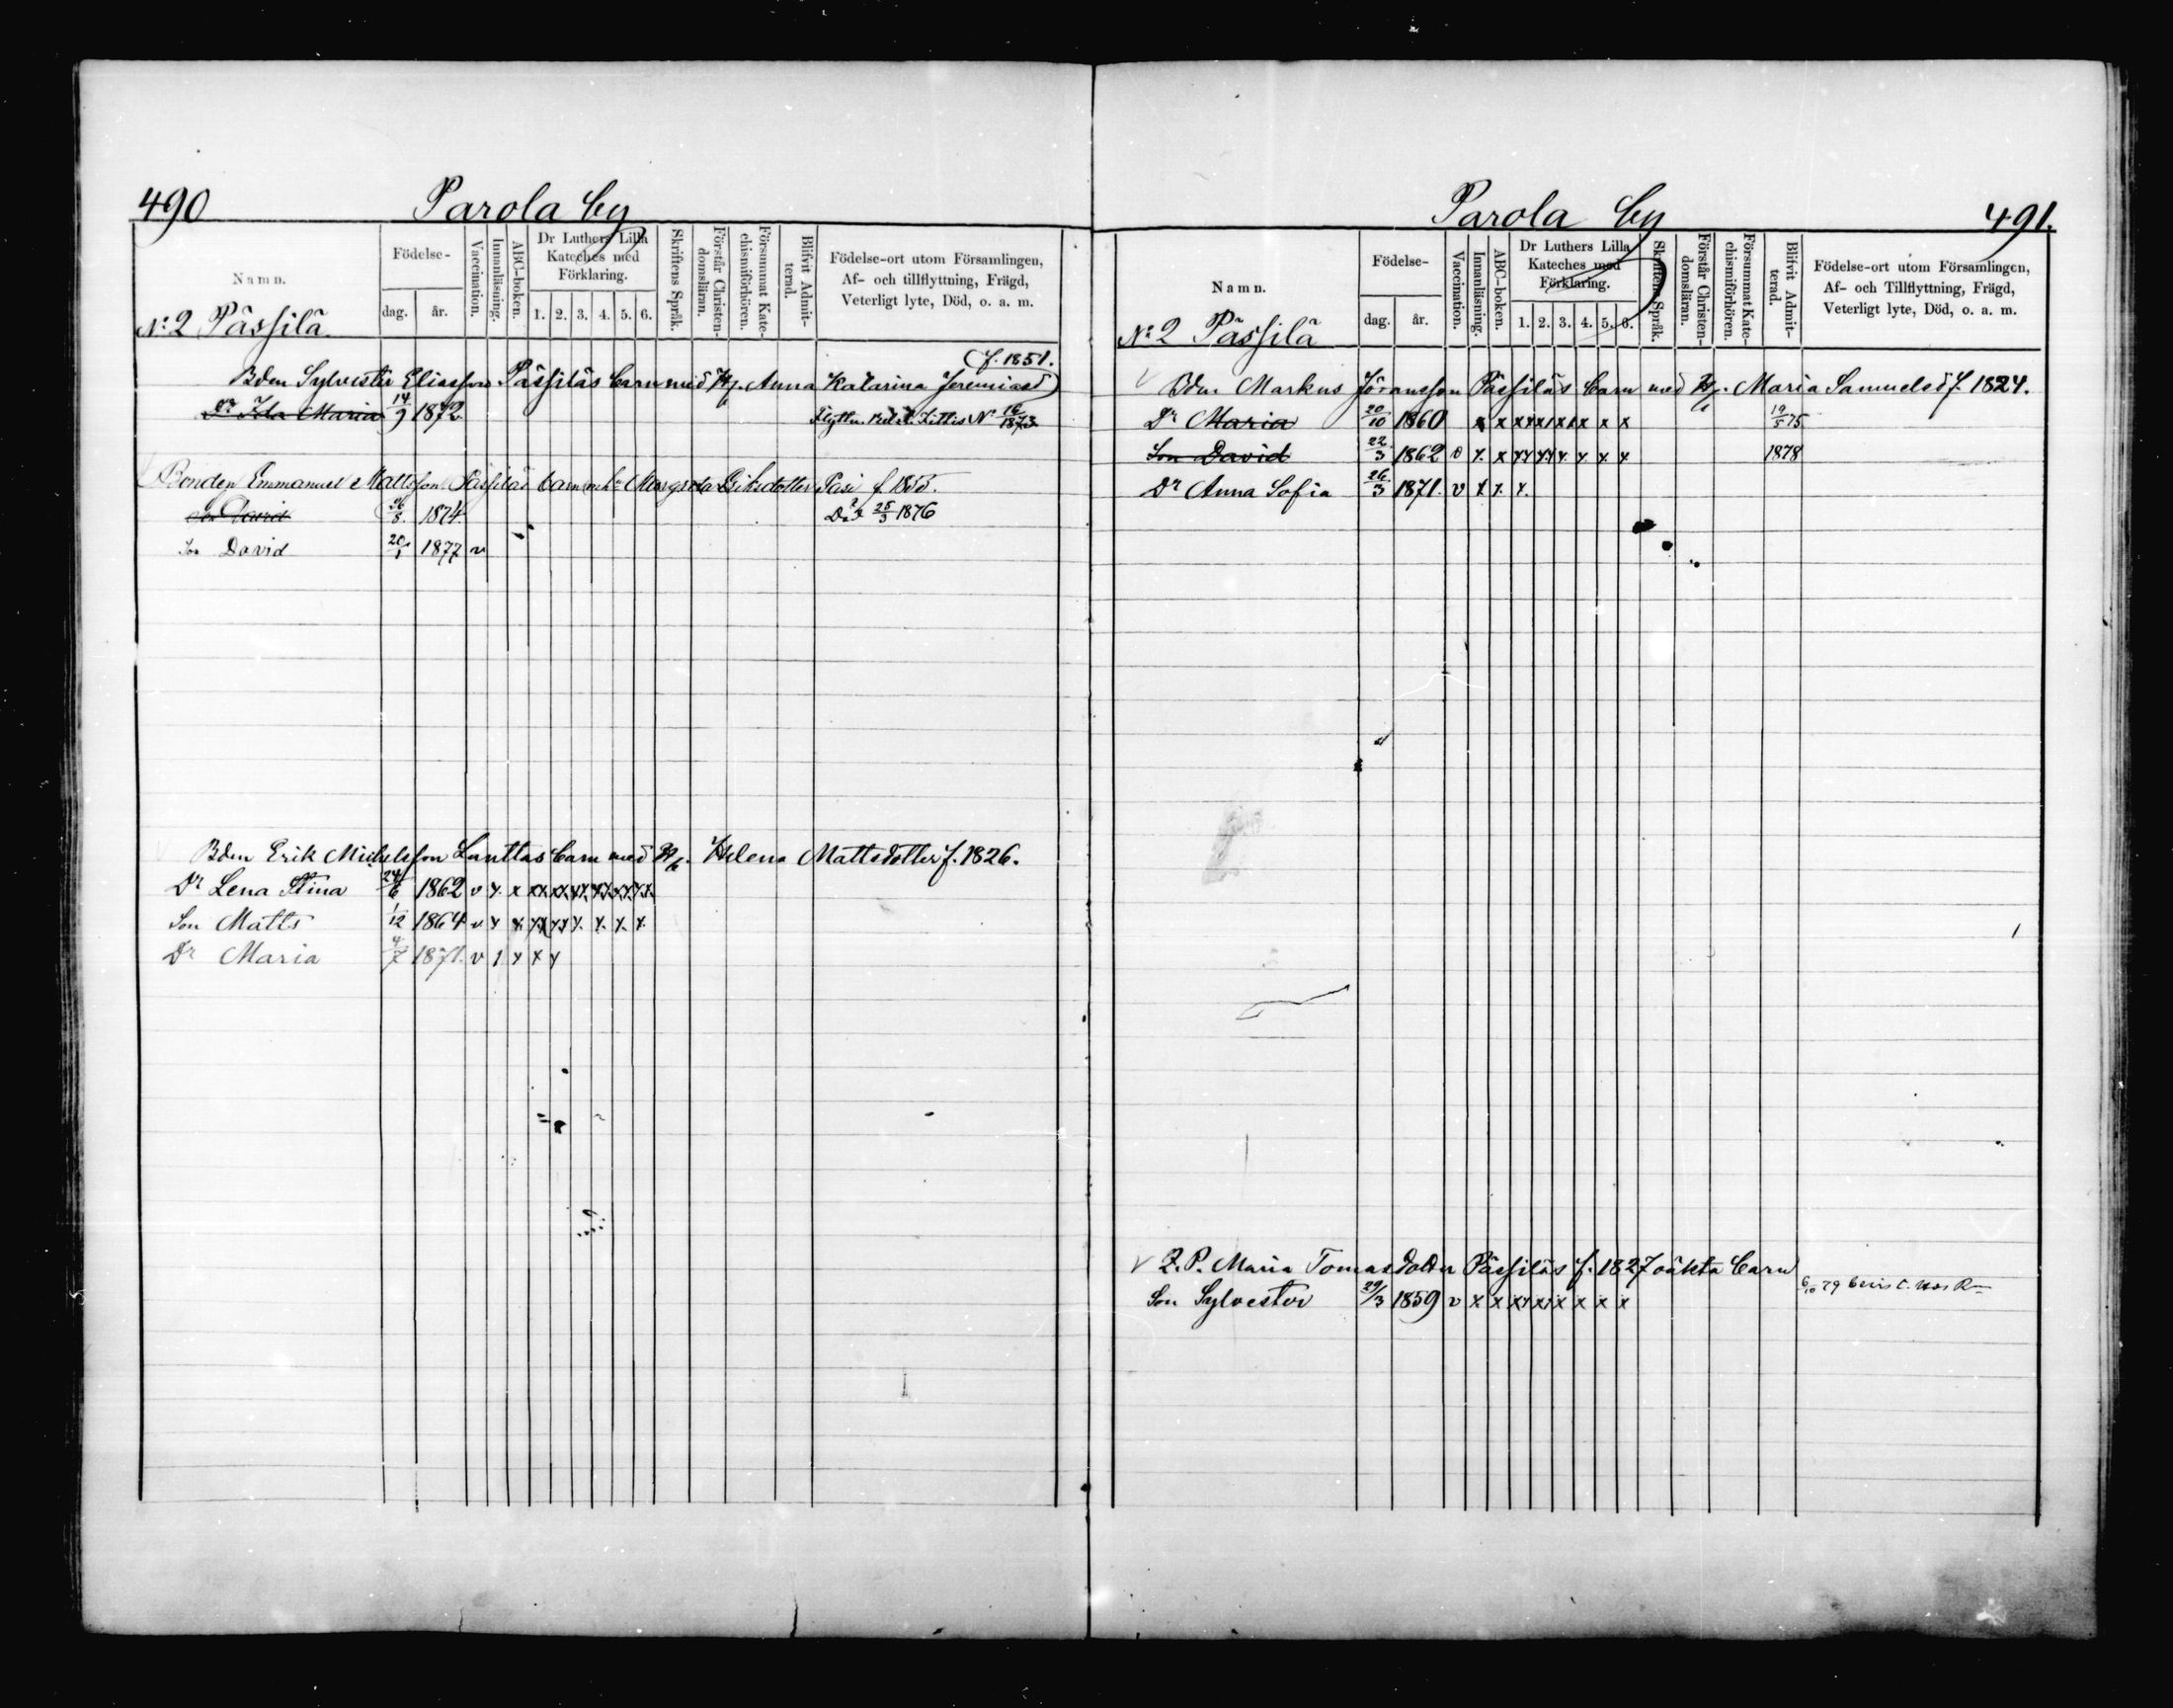 490 Parola by
Namn.
Födelse-
dag. år.
Vaccination.
Innanläsning.
ABC-boken.
Dr Luthers Lilla Kateches med Förklaring.
1. 2. 3. 4. 5. 6.
Skriftens Språk.
Förstår Christendomsläran.
Försummat Katechismiförhören.
Blifvit Admitterad.
Födelse-ort utom Församlingen,
Af- och tillflyttning, Frägd,
Veterligt lyte, Död, o. a. m.
N:2 Pässilä
(f. 1851.
Bden Sylvester Eliasson Pässiläs barn med H. Anna Katarina Jeremiasd)
Dr Ida Maria 14/9 1872 Flyttn. Kittis No 16/1873
Bonden Emmanuel Mattsson Pässiläs barn m. h. Margreta Eriksdotter Pasi f. 1855.
Son David 26/8 1874 Död 25/3 1876
Son David 20/1 1877 v
Bden Erik Michelsson Lanttas barn med H. Helena Mattsdotter f. 1826.
Dr Lena Stina 24/6 1862 v x x xx xx xx xx xx xx
Son Matts 1/12 1864 v x x xx xx x x x x
Dr Maria 4/7 1871. v 1 x x x
Parola by 491.
Namn.
Födelse-
dag. år.
Vaccination.
Innanläsning.
ABC-boken.
Dr Luthers Lilla Kateches med Förklaring.
1. 2. 3. 4. 5. 6.
Skriftens Språk.
Förstår Christendomsläran.
Försummat Katechismiförhören.
Blifvit Admitterad.
Födelse-ort utom Församlingen,
Af- och Tillflyttning, Frägd,
Veterligt lyte, Död, o. a. m.
N:2 Pässilä
Bden Markus Jöransson Pässiläs barn med H. Maria Samuelsd f. 1824.
Dr Maria 20/10 1860 x x xx xx xx x x x 19/5 75
Son David 22/3 1862 v x x xx xx x x x x 1878
Dr Anna Sofia 26/3 1871. v x x x.
v Z. P. Maria Tomasdotter Pässiläs f. 1827 oäkta barn
Son Sylvester 29/3 1859 v x x xx xx x x x x 6/10 79 bevis t.